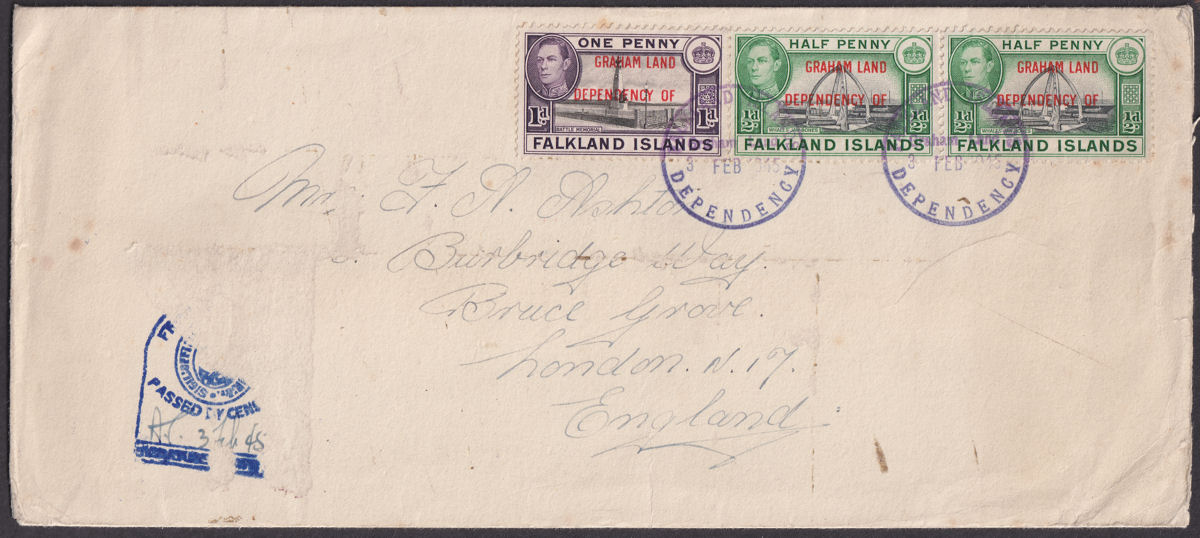 ONE PENNY
GRAHAM LAND
DEPENDENCY OF
1d 1d
BATTLE MEMORIAL
FALKLAND ISLANDS
HALF PENNY
GRAHAM LAND
DEPENDENCY OF
½d ½d
WHALE JAWBONES
FALKLAND ISLANDS
HALF PENNY
GRAHAM LAND
DEPENDENCY OF
½d ½d
WHALE JAWBONES
FALKLAND ISLANDS
3 FEB 1945
DEPENDENCY
3 FEB 1945
DEPENDENCY
Mr. F. A. Ashton
Burbridge Way.
Bruce Grove.
London. N. 17.
England
PASSED BY CENS
3 Feb 45